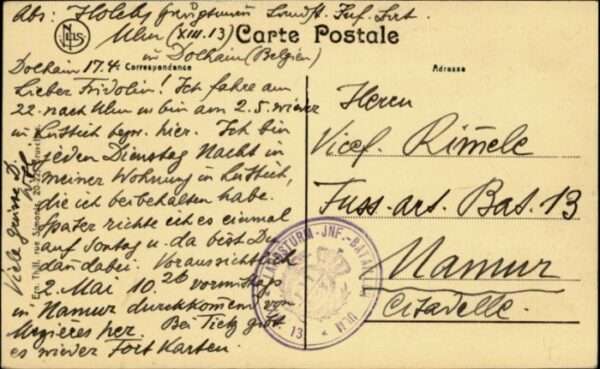 Abs: Landst. Inf. Bat.
Ulm (XIII. 13)
in Dolhain (Belgien)
Carte Postale
Correspondance
Adresse
Dolhain 17.4.
Lieber Fridolin! Ich fahre am
22. nach Ulm u bin am 2.5. wieder
in Lüttich bezw. hier. Ich bin
jeden Dienstag Nacht in
meiner Wohnung in Lüttich,
die ich beibehalten habe.
Später richte ich es einmal
auf Sontag u. da bist Du
dan dabei. Voraussichtlich
2. Mai 10 26 vormittags
in Namur durchkommen von
Mezières her. Bei Tietz gibt
es wieder Fort Karten.
Viele Grüsse D.
Ern. Thill, rue
Herrn
Vicef. Rimele
Fuss-art. Bat. 13
Namur
Citadelle.
LANDSTURM-INF.-BATAILLON
ULM
13